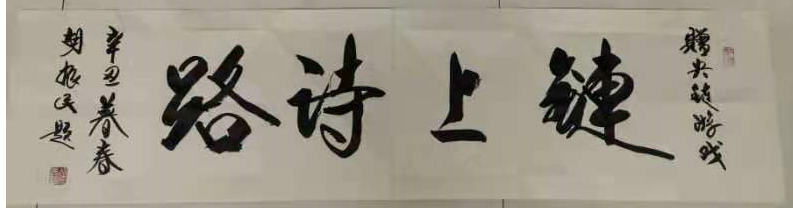 赠央链游戏
鏈上诗路
辛丑暮春
胡振民题